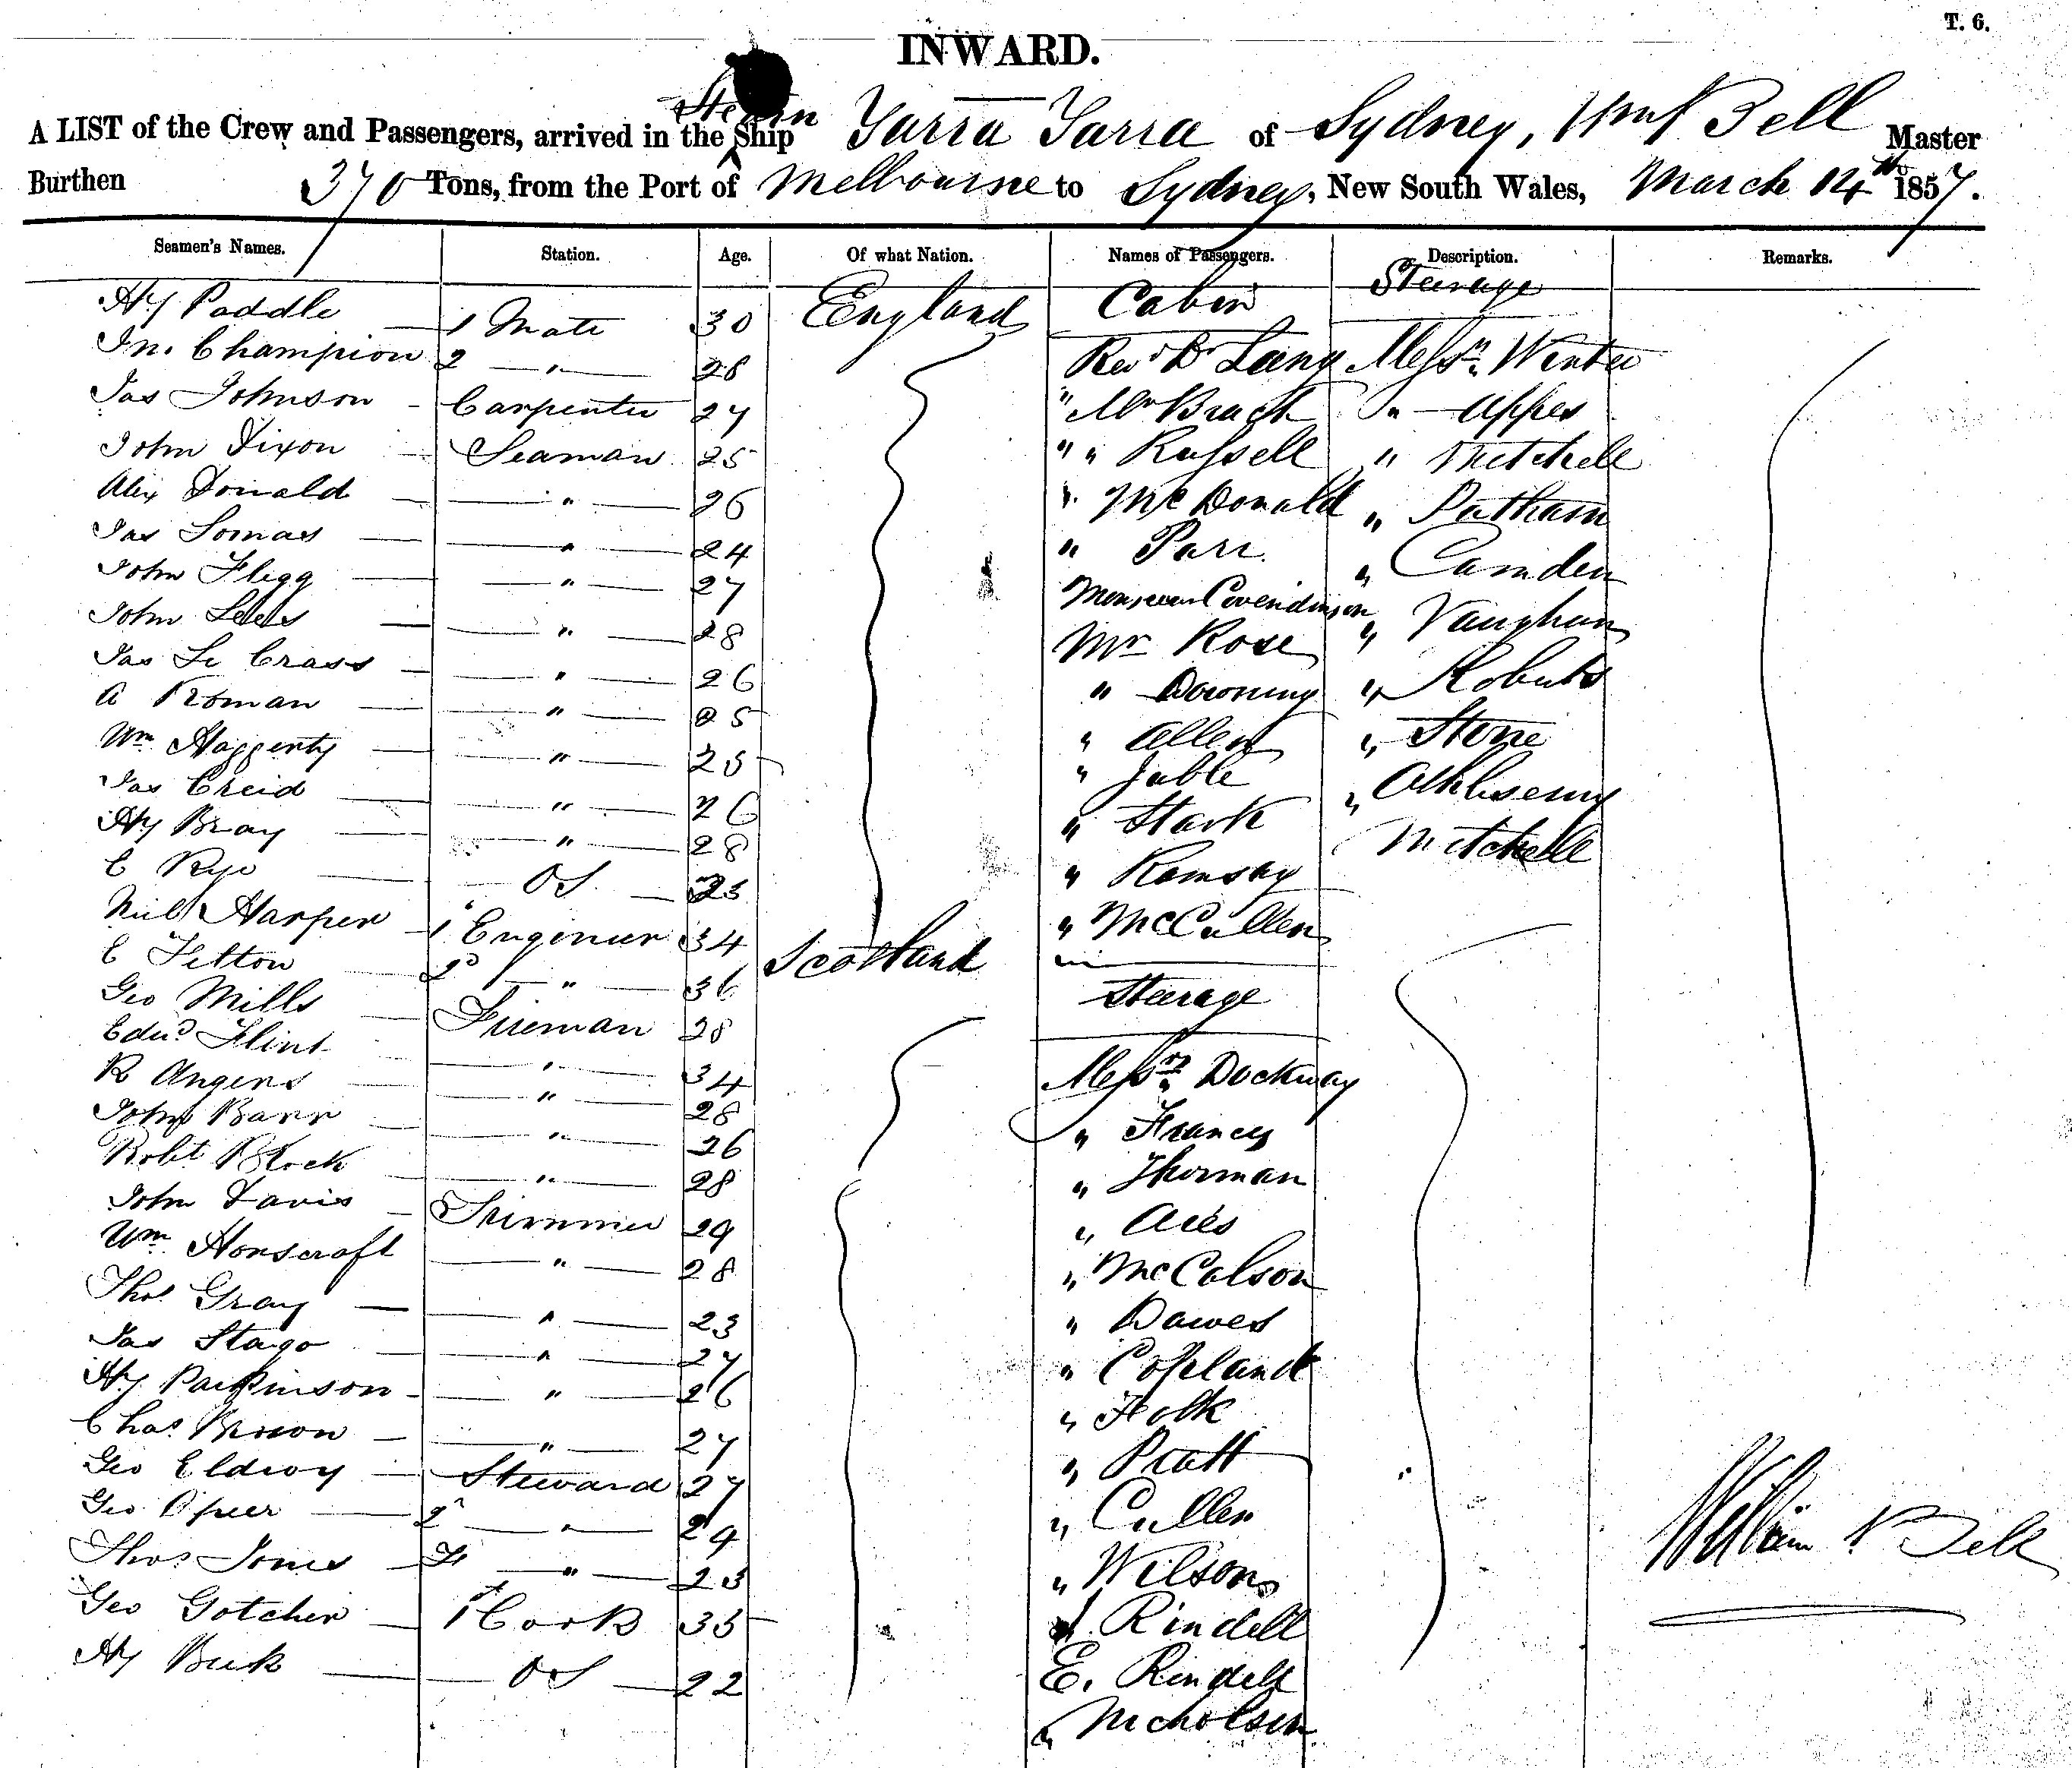 T. 6.
INWARD.
Steam
A LIST of the Crew and Passengers, arrived in the Ship Yarra Yarra of Sydney, Wm Bell Master
Burthen 370 Tons, from the Port of Melbourne to Sydney, New South Wales, March 14th 1857.
Seamen's Names. Station. Age. Of what Nation. Names of Passengers. Description. Remarks.
Hy Paddle 1 Mate 30 England Cabin Steerage
Jn. Champion 2 " 28 Revd Dr Lang Messrs Winter
Jas Johnson Carpenter 27 " Mr "
John Dixon Seaman 25 " " Russell " Mitchell
Alex Donald " 26 " McDonald "
Jas Lomas " 24 " Parr " Camden
John Flegg " 27 Monsieur " Vaughan
John Lees " 28 Mr Rose " Roberts
Jas Le Crass " 26 " Downing " Stone
A Roman " 25 " Allen "
Wm Haggerty " 25 " Jable Mitchell
Jas Creid " 26 " Stark
Hy Bray " 28 " Ramsay
C Rye OS 23 " McCullen
Neil Harper 1 Engineer 34 Scotland
C Felton 2d " 36 Steerage
Geo Mills Fireman 28
Edwd Flint " 34 Messrs Dockway
R Angens " 28 " Francis
John Barr " 26 " Thurman
Robt Block " 28 " Aries
John Davis Trimmer 29 " McColson
Wm Honscroft " 28 " Dawes
Thos Gray " 23 " Copland
Jas Stago " 27 " Holk
Hy Parkinson " 26 " Pratt
Chas Brown " 27 " Cullen
Geo Eldroy Steward 27 " Wilson
Geo 2d " 29 Rindell
Thos Jones " 23 E. Rindell
Geo Gotcher 1 Cook 35 " Nicholson
Hy Buck OS 22
William Bell